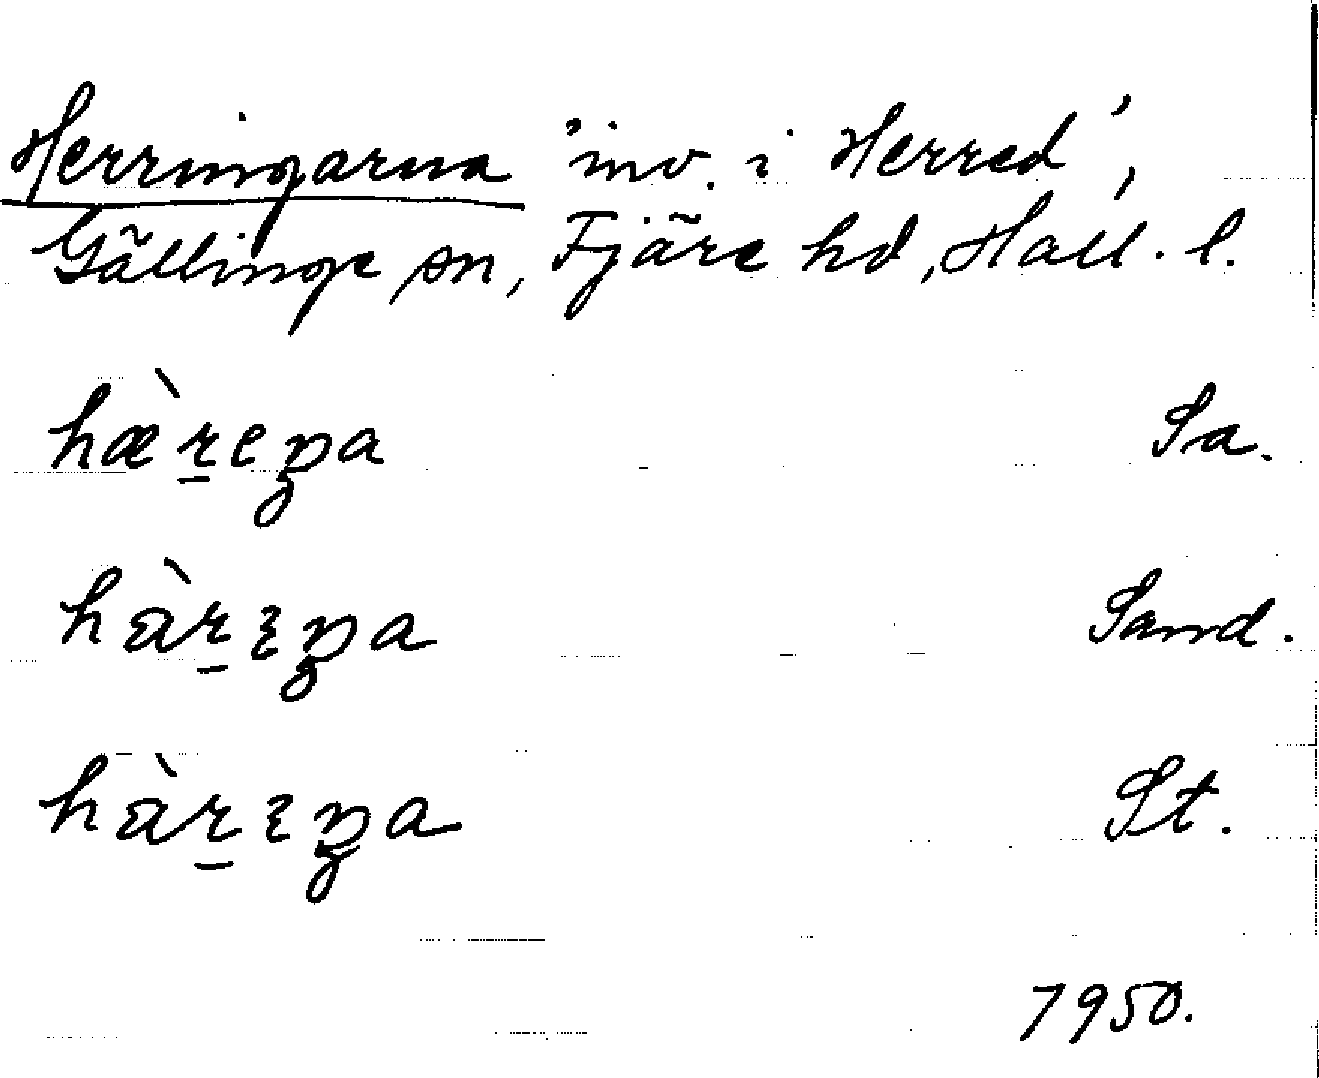 Herringarna 'inv. i Herred',
Gällinge sn, Fjäre hd, Hall. l.
hæ̀ṟeŋa Sa.
hàṟɛŋa Sand.
hàṟɛŋa St.
7950.